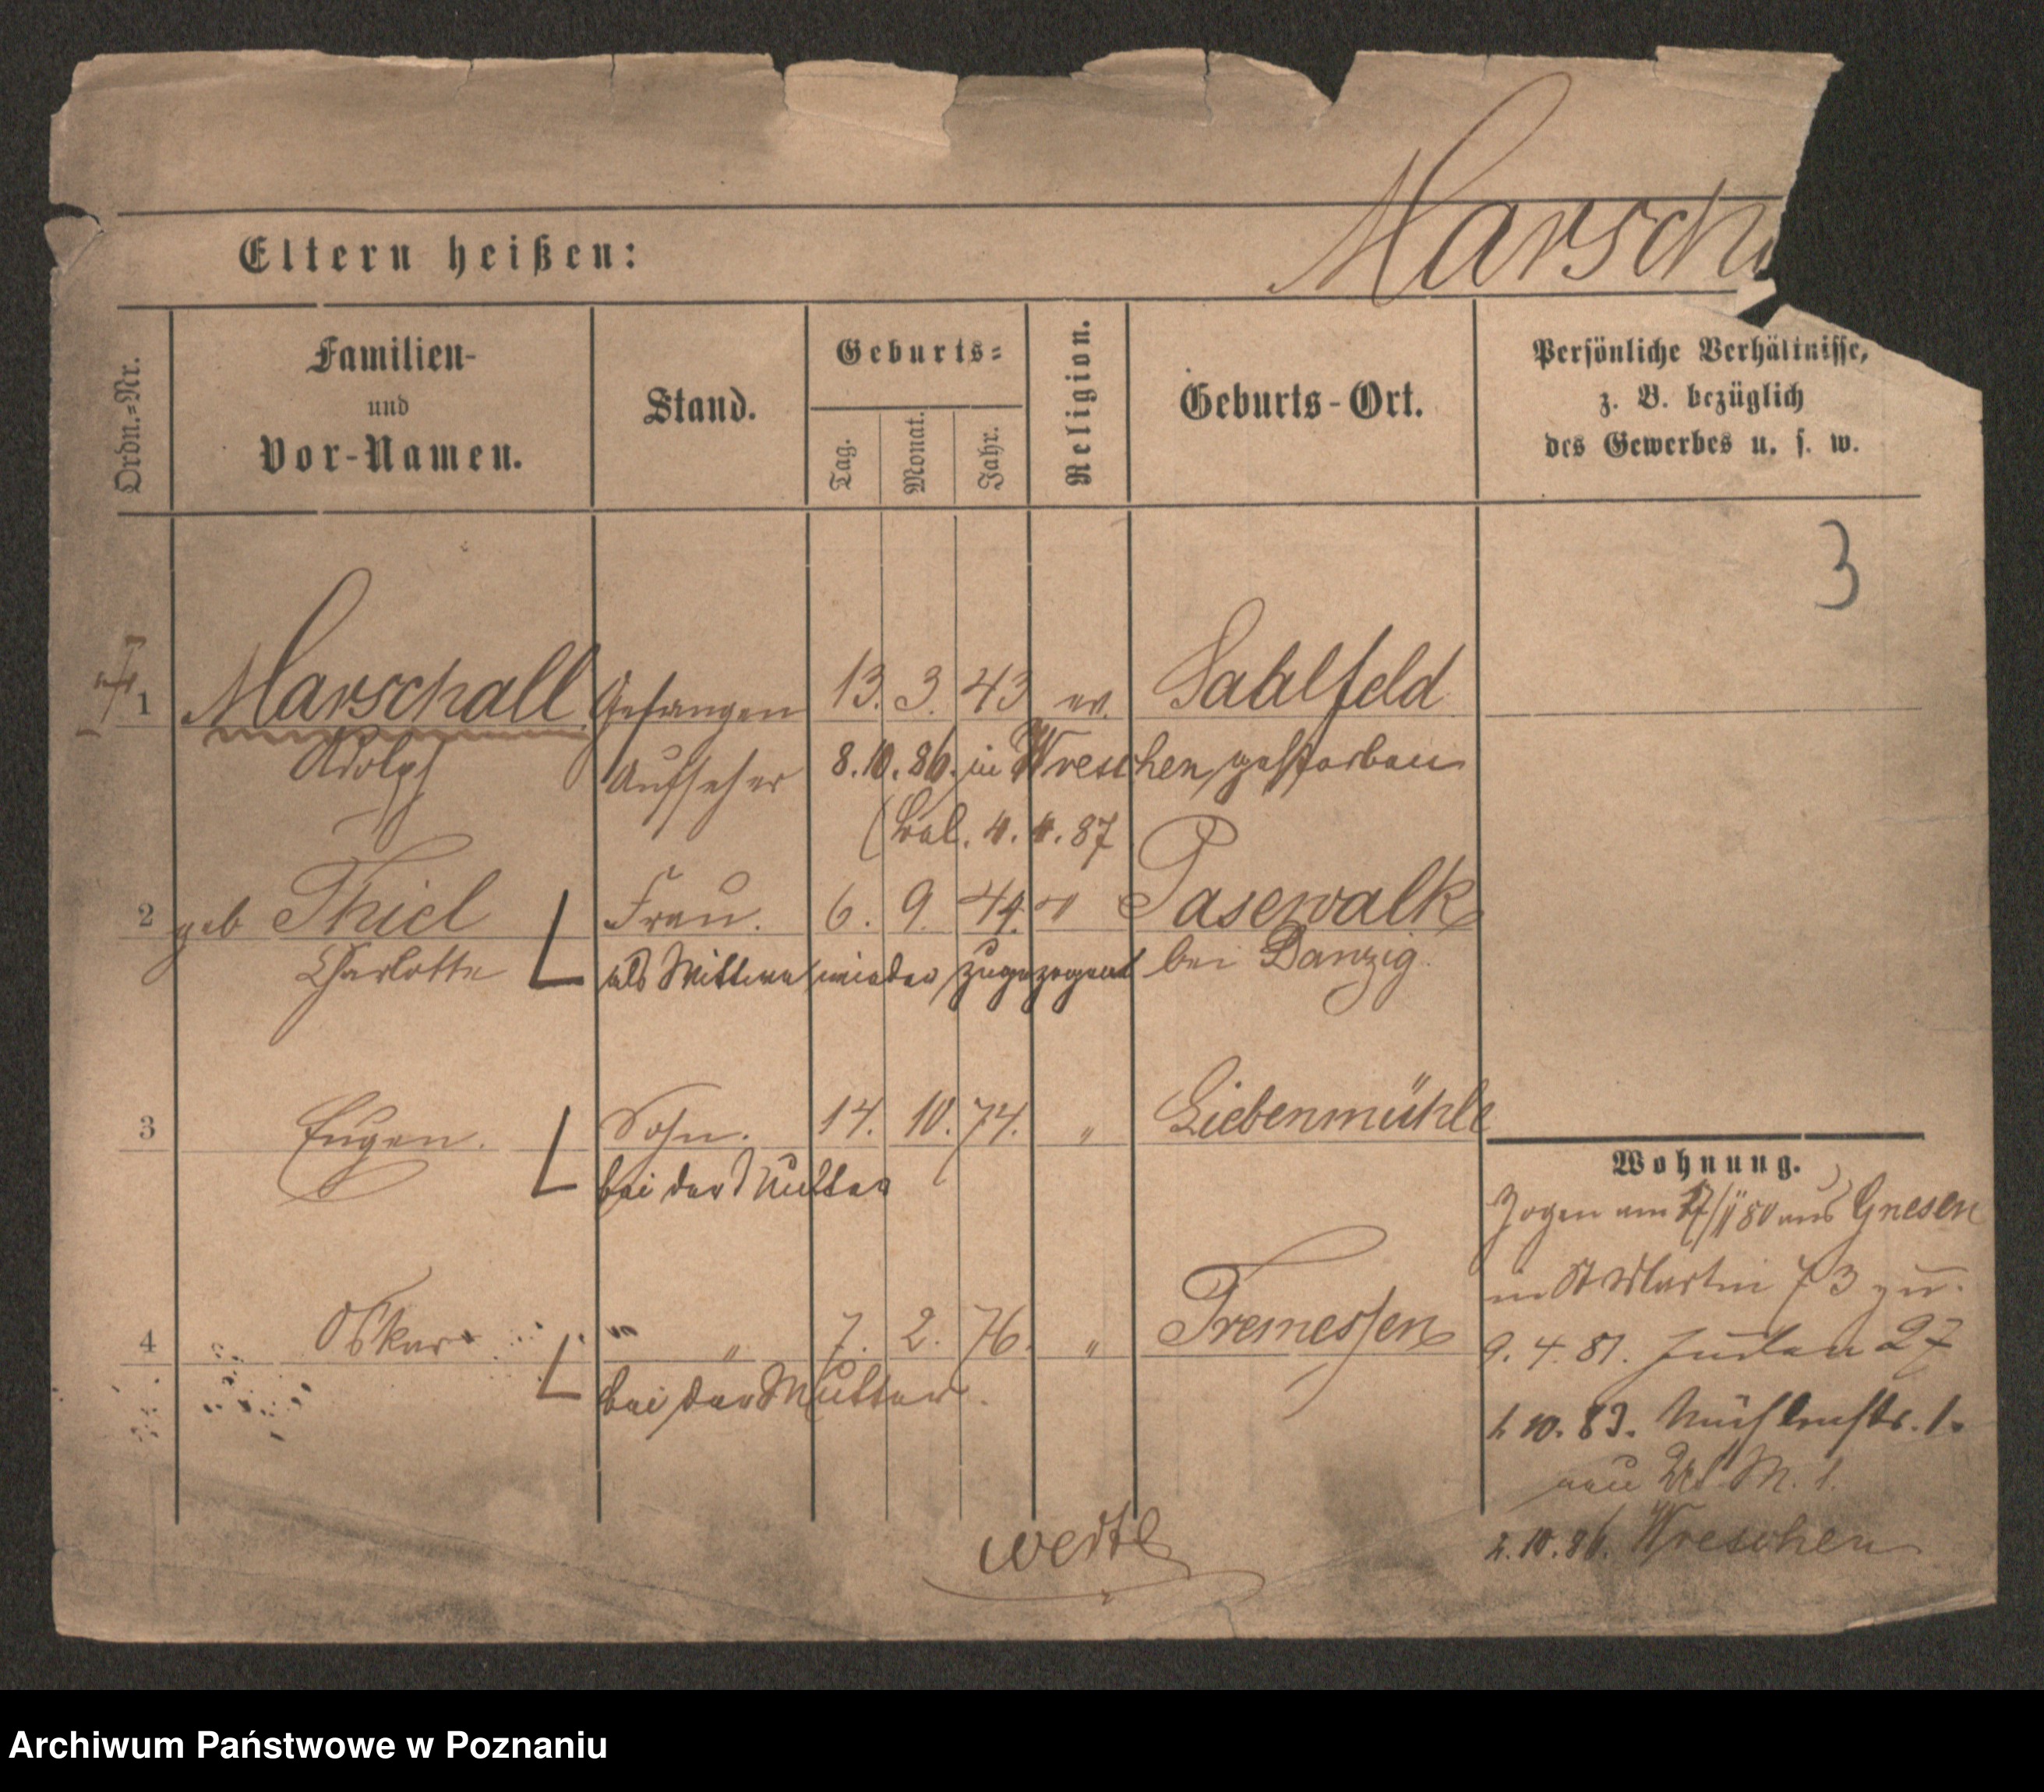 Marsch
Eltern heißen:
Ordn.-Nr.
Familien-
und
Vor-Namen.
Stand.
Geburts-
Tag.
Monat.
Jahr.
Religion.
Geburts-Ort.
Persönliche Verhältnisse,
z. B. bezüglich
des Gewerbes u. s. w.
3
1 Marschall Gefangen 13. 3. 43 ev. Saalfeld
Adolph Aufseher 8.10.86. in Wreschen gestorben
4. 4. 87
2 geb Thiel Frau. 6. 9. 44. Pasewalk
Charlotte als Wittwe wieder zugezogen bei Danzig.
3 Eugen. Sohn. 14. 10. 74. " Liebenmühle
bei der Mutter
4 Oskar " 7. 2. 76. " Tremessen
bei der Mutter.
Wohnung.
Zogen am 17/11 80 aus Gnesen
in St Martin 73 zu.
9. 4. 81. Juden 27
1. 10. 83. Mühlenstr. 1.
M. 1.
2. 10. 86. Wreschen
Archiwum Państwowe w Poznaniu